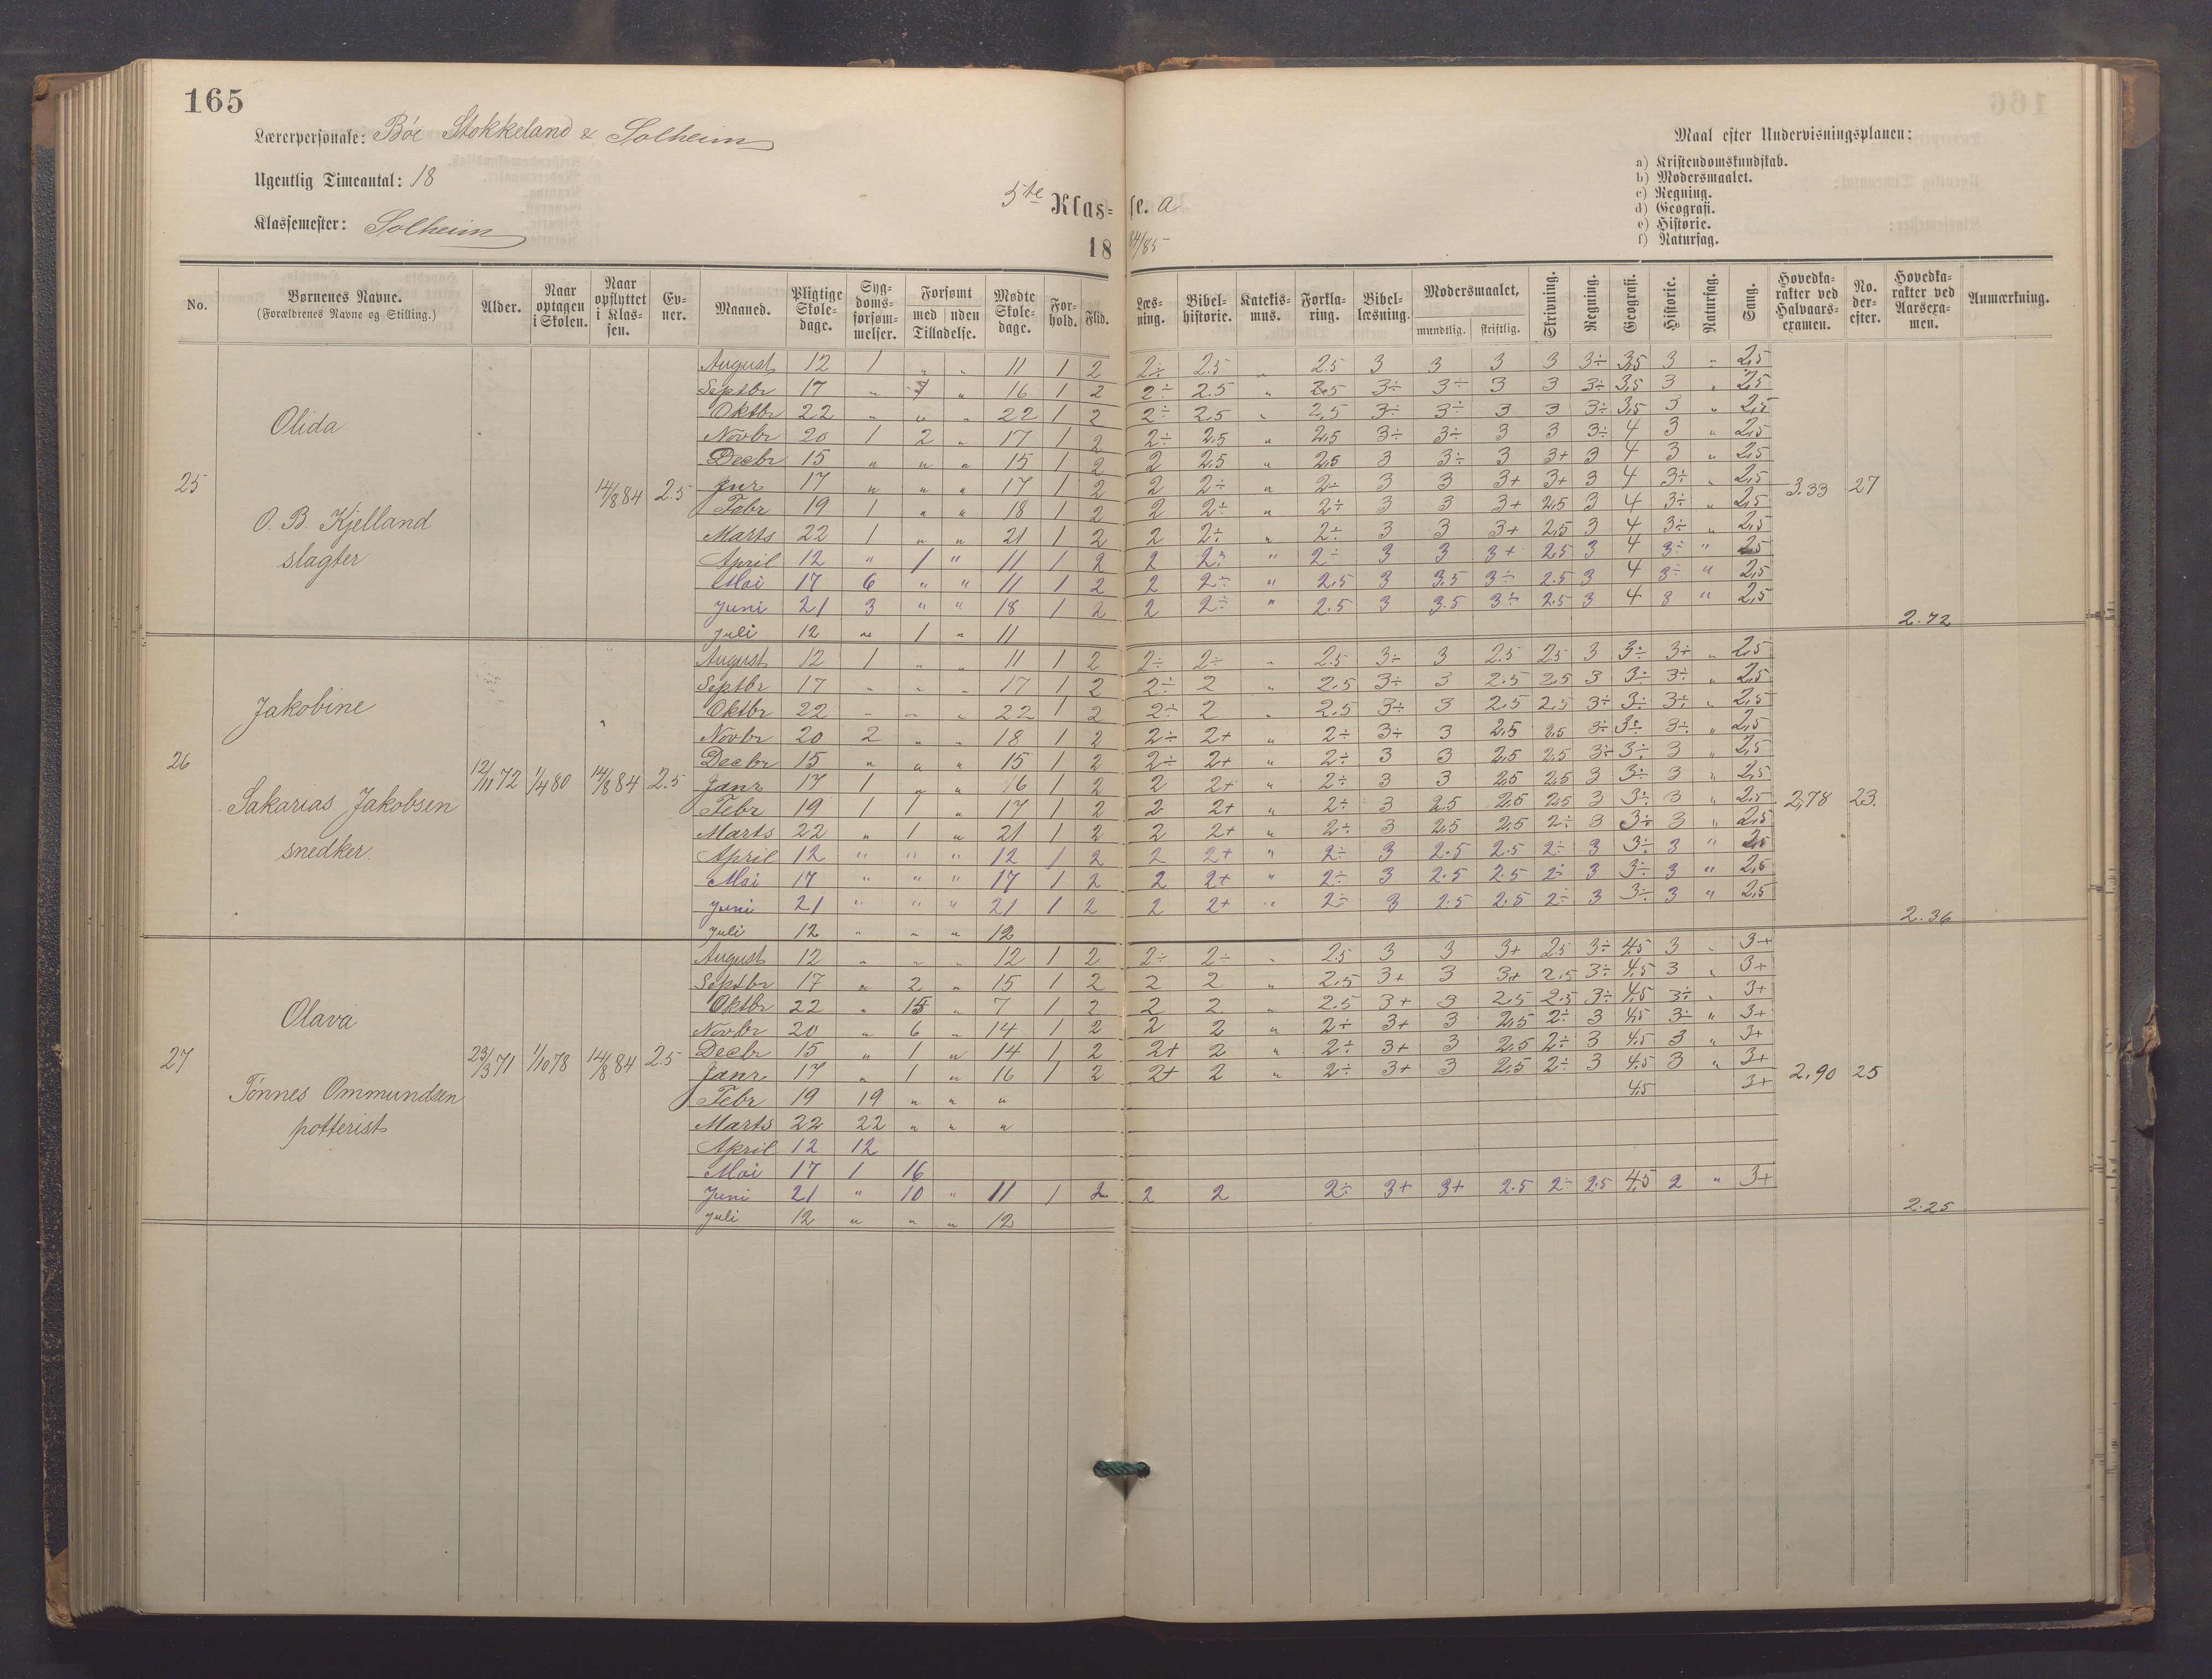 165
Lærerpersonale: Bøe Stokkeland & Solheim
Ugentlig Timeantal: 18
Klassemester: Solheim
5te Klasse. a
1884/85
Maal efter Undervisningsplanen:
a) Kristendomskundskab.
b) Modersmaalet.
c) Regning.
d) Geografi.
e) Historie.
f) Naturfag.
No. Børnenes Navne. (Forældrenes Navne og Stilling.) Alder. Naar optagen i Skolen. Naar opflyttet i Klassen. Evner. Maaned. Pligtige Skoledage. Sygdomsforsømmelser. Forsømt med uden Tilladelse. Mødte Skoledage. Forhold. Flid. Læsning. Bibelhistorie. Katekismus. Forklaring. Bibellæsning. Modersmaalet, mundtlig. skriftlig. Skrivning. Regning. Geografi. Historie. Naturfag. Sang. Hovedkarakter ved Halvaarsexamen. No. derefter. Hovedkarakter ved Aarsexamen. Anmærkning.
25 Olida
O. B. Kjelland
slagter
14/8 84 2.5 3.33 27 2.72
August 12 1 „ „ 11 1 2 2÷ 2.5 „ 2.5 3 3 3 3 3÷ 3,5 3 „ 2,5
Septbr 17 „ 1 „ 16 1 2 2÷ 2.5 „ 2.5 3÷ 3÷ 3 3 3÷ 3,5 3 „ 2,5
Oktbr 22 „ „ „ 22 1 2 2÷ 2,5 „ 2,5 3÷ 3÷ 3 3 3÷ 3,5 3 „ 2,5
Novbr 20 1 2 „ 17 1 2 2÷ 2,5 „ 2,5 3÷ 3÷ 3 3 3÷ 4 3 „ 2,5
Decbr 15 „ „ „ 15 1 2 2 2,5 „ 2,5 3 3÷ 3 3+ 3 4 3 „ 2,5
Jnr 17 „ „ „ 17 1 2 2 2÷ „ 2÷ 3 3 3+ 3+ 3 4 3÷ „ 2,5
Febr 19 1 „ „ 18 1 2 2 2÷ „ 2÷ 3 3 3+ 2,5 3 4 3÷ „ 2,5
Marts 22 1 „ „ 21 1 2 2 2÷ „ 2÷ 3 3 3+ 2,5 3 4 3÷ „ 2,5
April 12 „ 1 „ 11 1 2 2 2÷ „ 2÷ 3 3 3+ 2.5 3 4 3÷ „ 2,5
Mai 17 6 „ „ 11 1 2 2 2÷ „ 2.5 3 3.5 3÷ 2.5 3 4 3÷ „ 2,5
Juni 21 3 „ „ 18 1 2 2 2÷ „ 2.5 3 3.5 3÷ 2.5 3 4 3 „ 2,5
Juli 12 „ 1 „ 11
26 Jakobine
Sakarias Jakobsen
snedker.
12/11 72 1/4 80 14/8 84 2.5 2,78 23. 2.36
August 12 1 „ „ 11 1 2 2÷ 2÷ „ 2.5 3÷ 3 2.5 2,5 3 3÷ 3÷ „ 2,5
Septbr 17 „ „ „ 17 1 2 2÷ 2 „ 2.5 3÷ 3 2.5 2,5 3 3÷ 3÷ „ 2,5
Oktbr 22 „ „ „ 22 1 2 2÷ 2 „ 2.5 3÷ 3 2.5 2,5 3÷ 3÷ 3÷ „ 2,5
Novbr 20 2 „ „ 18 1 2 2÷ 2+ „ 2÷ 3÷ 3 2,5 2,5 3÷ 3÷ 3÷ „ 2,5
Decbr 15 „ „ „ 15 1 2 2÷ 2+ „ 2÷ 3 3 2,5 2,5 3÷ 3÷ 3 „ 2,5
Janr 17 1 „ „ 16 1 2 2 2+ „ 2÷ 3 3 2,5 2,5 3 3÷ 3 „ 2,5
Febr 19 1 1 „ 17 1 2 2 2+ „ 2÷ 3 2,5 2,5 2,5 3 3÷ 3 „ 2,5
Marts 22 „ 1 „ 21 1 2 2 2+ „ 2÷ 3 2,5 2,5 2÷ 3 3÷ 3 „ 2,5
April 12 „ „ „ 12 1 2 2 2+ „ 2÷ 3 2.5 2.5 2÷ 3 3÷ 3 „ 2,5
Mai 17 „ „ „ 17 1 2 2 2+ „ 2÷ 3 2.5 2.5 2÷ 3 3÷ 3 „ 2,5
Juni 21 „ „ „ 21 1 2 2 2+ „ 2÷ 3 2.5 2.5 2÷ 3 3÷ 3 „ 2,5
Juli 12 „ „ „ 12
27 Olava
Tönnes Ommundsen
potterist
23/3 71 1/10 78 14/8 84 2.5 2,90 25 2.25
August 12 „ „ „ 12 1 2 2÷ 2÷ „ 2.5 3 3 3+ 2.5 3÷ 4,5 3 „ 3+
Septbr 17 „ 2 „ 15 1 2 2 2 „ 2.5 3+ 3 3+ 2.5 3÷ 4,5 3 „ 3+
Oktbr 22 „ 15 „ 7 1 2 2 2 „ 2.5 3+ 3 2.5 2.5 3÷ 4,5 3÷ „ 3+
Novbr 20 „ 6 „ 14 1 2 2 2 „ 2÷ 3+ 3 2,5 2÷ 3 4,5 3÷ „ 3+
Decbr 15 „ 1 „ 14 1 2 2+ 2 „ 2÷ 3+ 3 2.5 2÷ 3 4,5 3 „ 3+
Janr 17 „ 1 „ 16 1 2 2+ 2 „ 2÷ 3+ 3 2,5 2÷ 3 4,5 3 „ 3+
Febr 19 19 „ „ „ 4,5 3+
Marts 22 22 „ „ „
April 12 12
Mai 17 1 16
Juni 21 „ 10 „ 11 1 2 2 2 2÷ 3+ 3+ 2.5 2÷ 2.5 4,5 2 „ 3+
Juli 12 „ „ „ 12